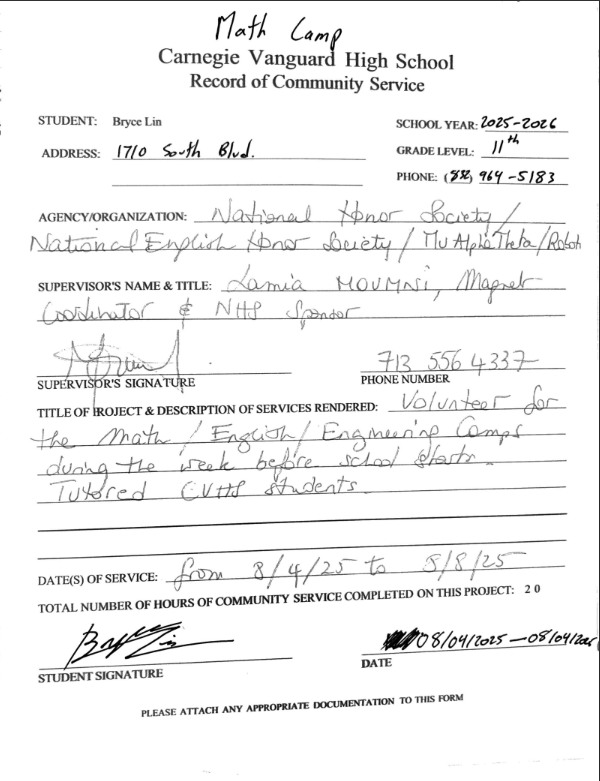 Math Camp
Carnegie Vanguard High School
Record of Community Service
STUDENT: Bryce Lin
SCHOOL YEAR: 2025-2026
ADDRESS: 1710 South Blvd.
GRADE LEVEL: 11th
PHONE: (832) 964-5183
AGENCY/ORGANIZATION: National Honor Society/
National English Honor Society / Mu Alpha Theta / Robot
SUPERVISOR'S NAME & TITLE: Lamia MOUMNI, Magnet
Coordinator & NHS Sponsor
713 556 4337
SUPERVISOR'S SIGNATURE
PHONE NUMBER
TITLE OF PROJECT & DESCRIPTION OF SERVICES RENDERED: Volunteer for
the Math / English / Engineering Camps
during the week before school starts.
Tutored CVHS students.
DATE(S) OF SERVICE: from 8/4/25 to 8/8/25
TOTAL NUMBER OF HOURS OF COMMUNITY SERVICE COMPLETED ON THIS PROJECT: 20
Bryce Lin
08/04/2025-08/04/2026
STUDENT SIGNATURE
DATE
PLEASE ATTACH ANY APPROPRIATE DOCUMENTATION TO THIS FORM